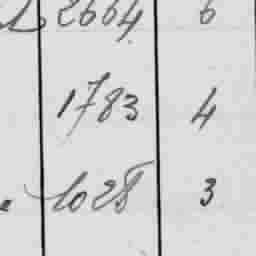 2664 6
1783 4
1028 3